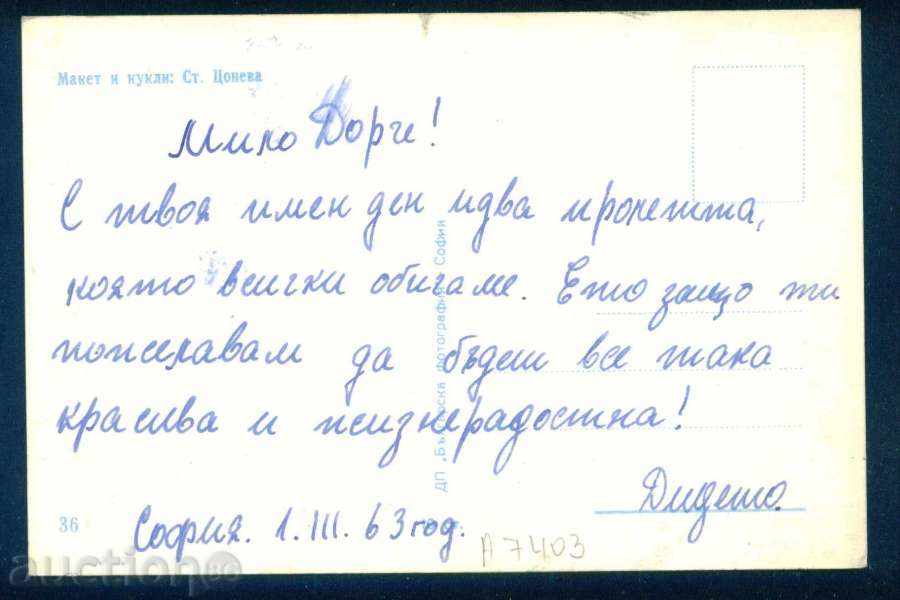 Макет и кукли: Ст. Цонева
Мило Дорче!
С твоя имен ден идва пролетта,
която всички обичаме. Ето защо ти
пожелавам да бъдеш все така
красива и жизнерадостна!
Дидето.
София. 1.III.63 год.
36
ДП „Българска фотография“ София
A7403
auction